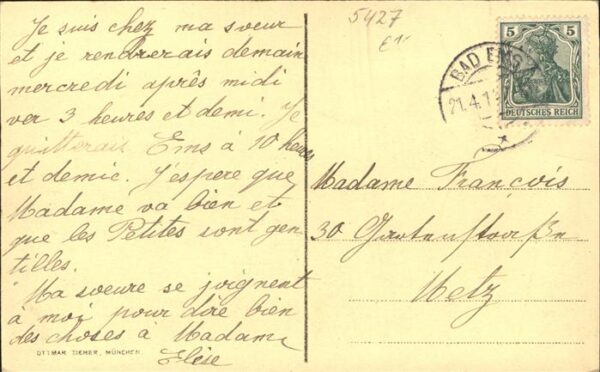 Je suis chez ma sveur
et je rendrerais demain
mercredi après midi
ver 3 heures et demi. Je
quitterais Ems à 10 heures
et demie. J'espere que
Madame va bien et
que les Petites sont gen
tilles.
Ma soeure se joignent
à moi pour dire bien
des choses à Madame
Elise
OTTMAR ZIEHER, MÜNCHEN.
5427
E
BAD EMS
21.4.1
5 5
DEUTSCHES REICH
Madame François
30 Gartenstraße
Metz